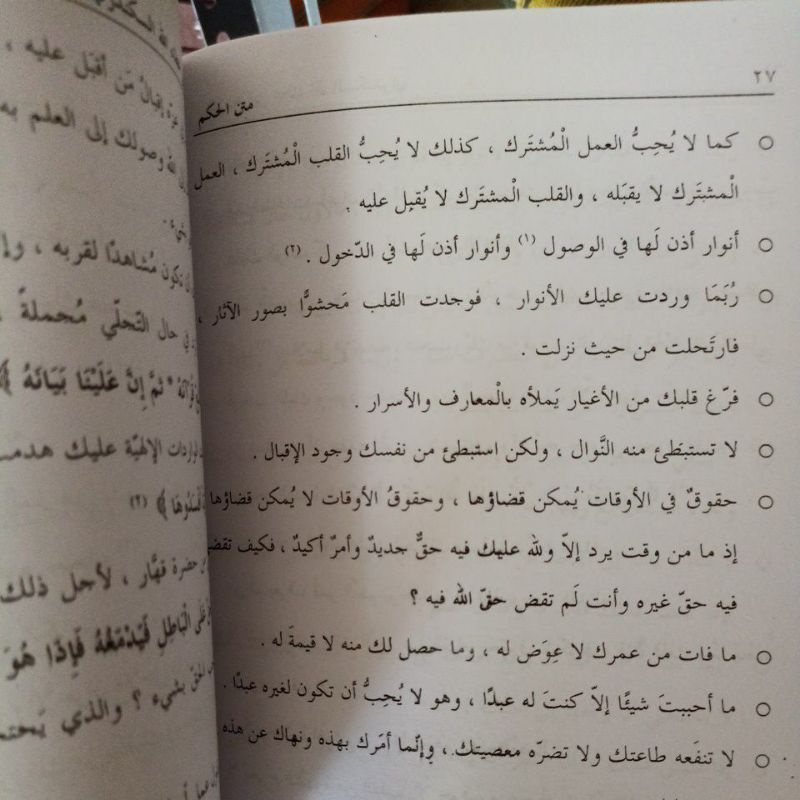 ٢٧
متن الحكم
○ كما لا يُحِبُّ العمل الْمُشتَرك ، كذلك لا يُحِبُّ القلب الْمُشتَرك ، العمل
الْمشتَرك لا يقبَله ، والقلب الْمشتَرك لا يُقبِل عليه .
○ أنوار أذن لَها في الوصول (١) وأنوار أذن لَها في الدّخول . (٢)
○ رُبَمَا وردت عليك الأنوار ، فوجدت القلب مَحشوًّا بصور الآثار ،
فارتَحلت من حيث نزلت .
○ فرّغ قلبك من الأغيار يَملأه بالْمعارف والأسرار .
○ لا تستبطَئ منه النَّوال ، ولكن استبطئ من نفسك وجود الإقبال .
○ حقوقٌ في الأوقات يُمكن قضاؤها ، وحقوقُ الأوقات لا يُمكن قضاؤها
إذ ما من وقت يرد إلاّ ولله عليك فيه حقٌّ جديدٌ وأمرٌ أكيدٌ ، فكيف
فيه حقّ غيره وأنت لَم تقض حقّ الله فيه ؟
○ ما فات من عمرك لا عِوَض له ، وما حصل لك منه لا قيمةَ له .
○ ما أحببتَ شيئًا إلاّ كنتَ له عبدًا ، وهو لا يُحِبُّ أن تكون لغيره عبدًا .
○ لا تنفَعه طاعتك ولا تضرّه معصيتك ، وإنّما أمَرك بهذه ونهاك عن هذه
إقبالُ مَن أقبَل عليه ،
وصولك إلى العلم به
مُشاهدًا لقربه ،
في حال التّجلّي مُجملةً
ثُمَّ إِنَّ عَلَيْنَا بَيَانَهُ ﴾
الإلهيّة عليك
(٢)
حضرة قهَّار ، لأجل ذلك
الْبَاطِلِ فَيَدْمَغُهُ فَإِذَا هُوَ
بشيء ؟ والذي